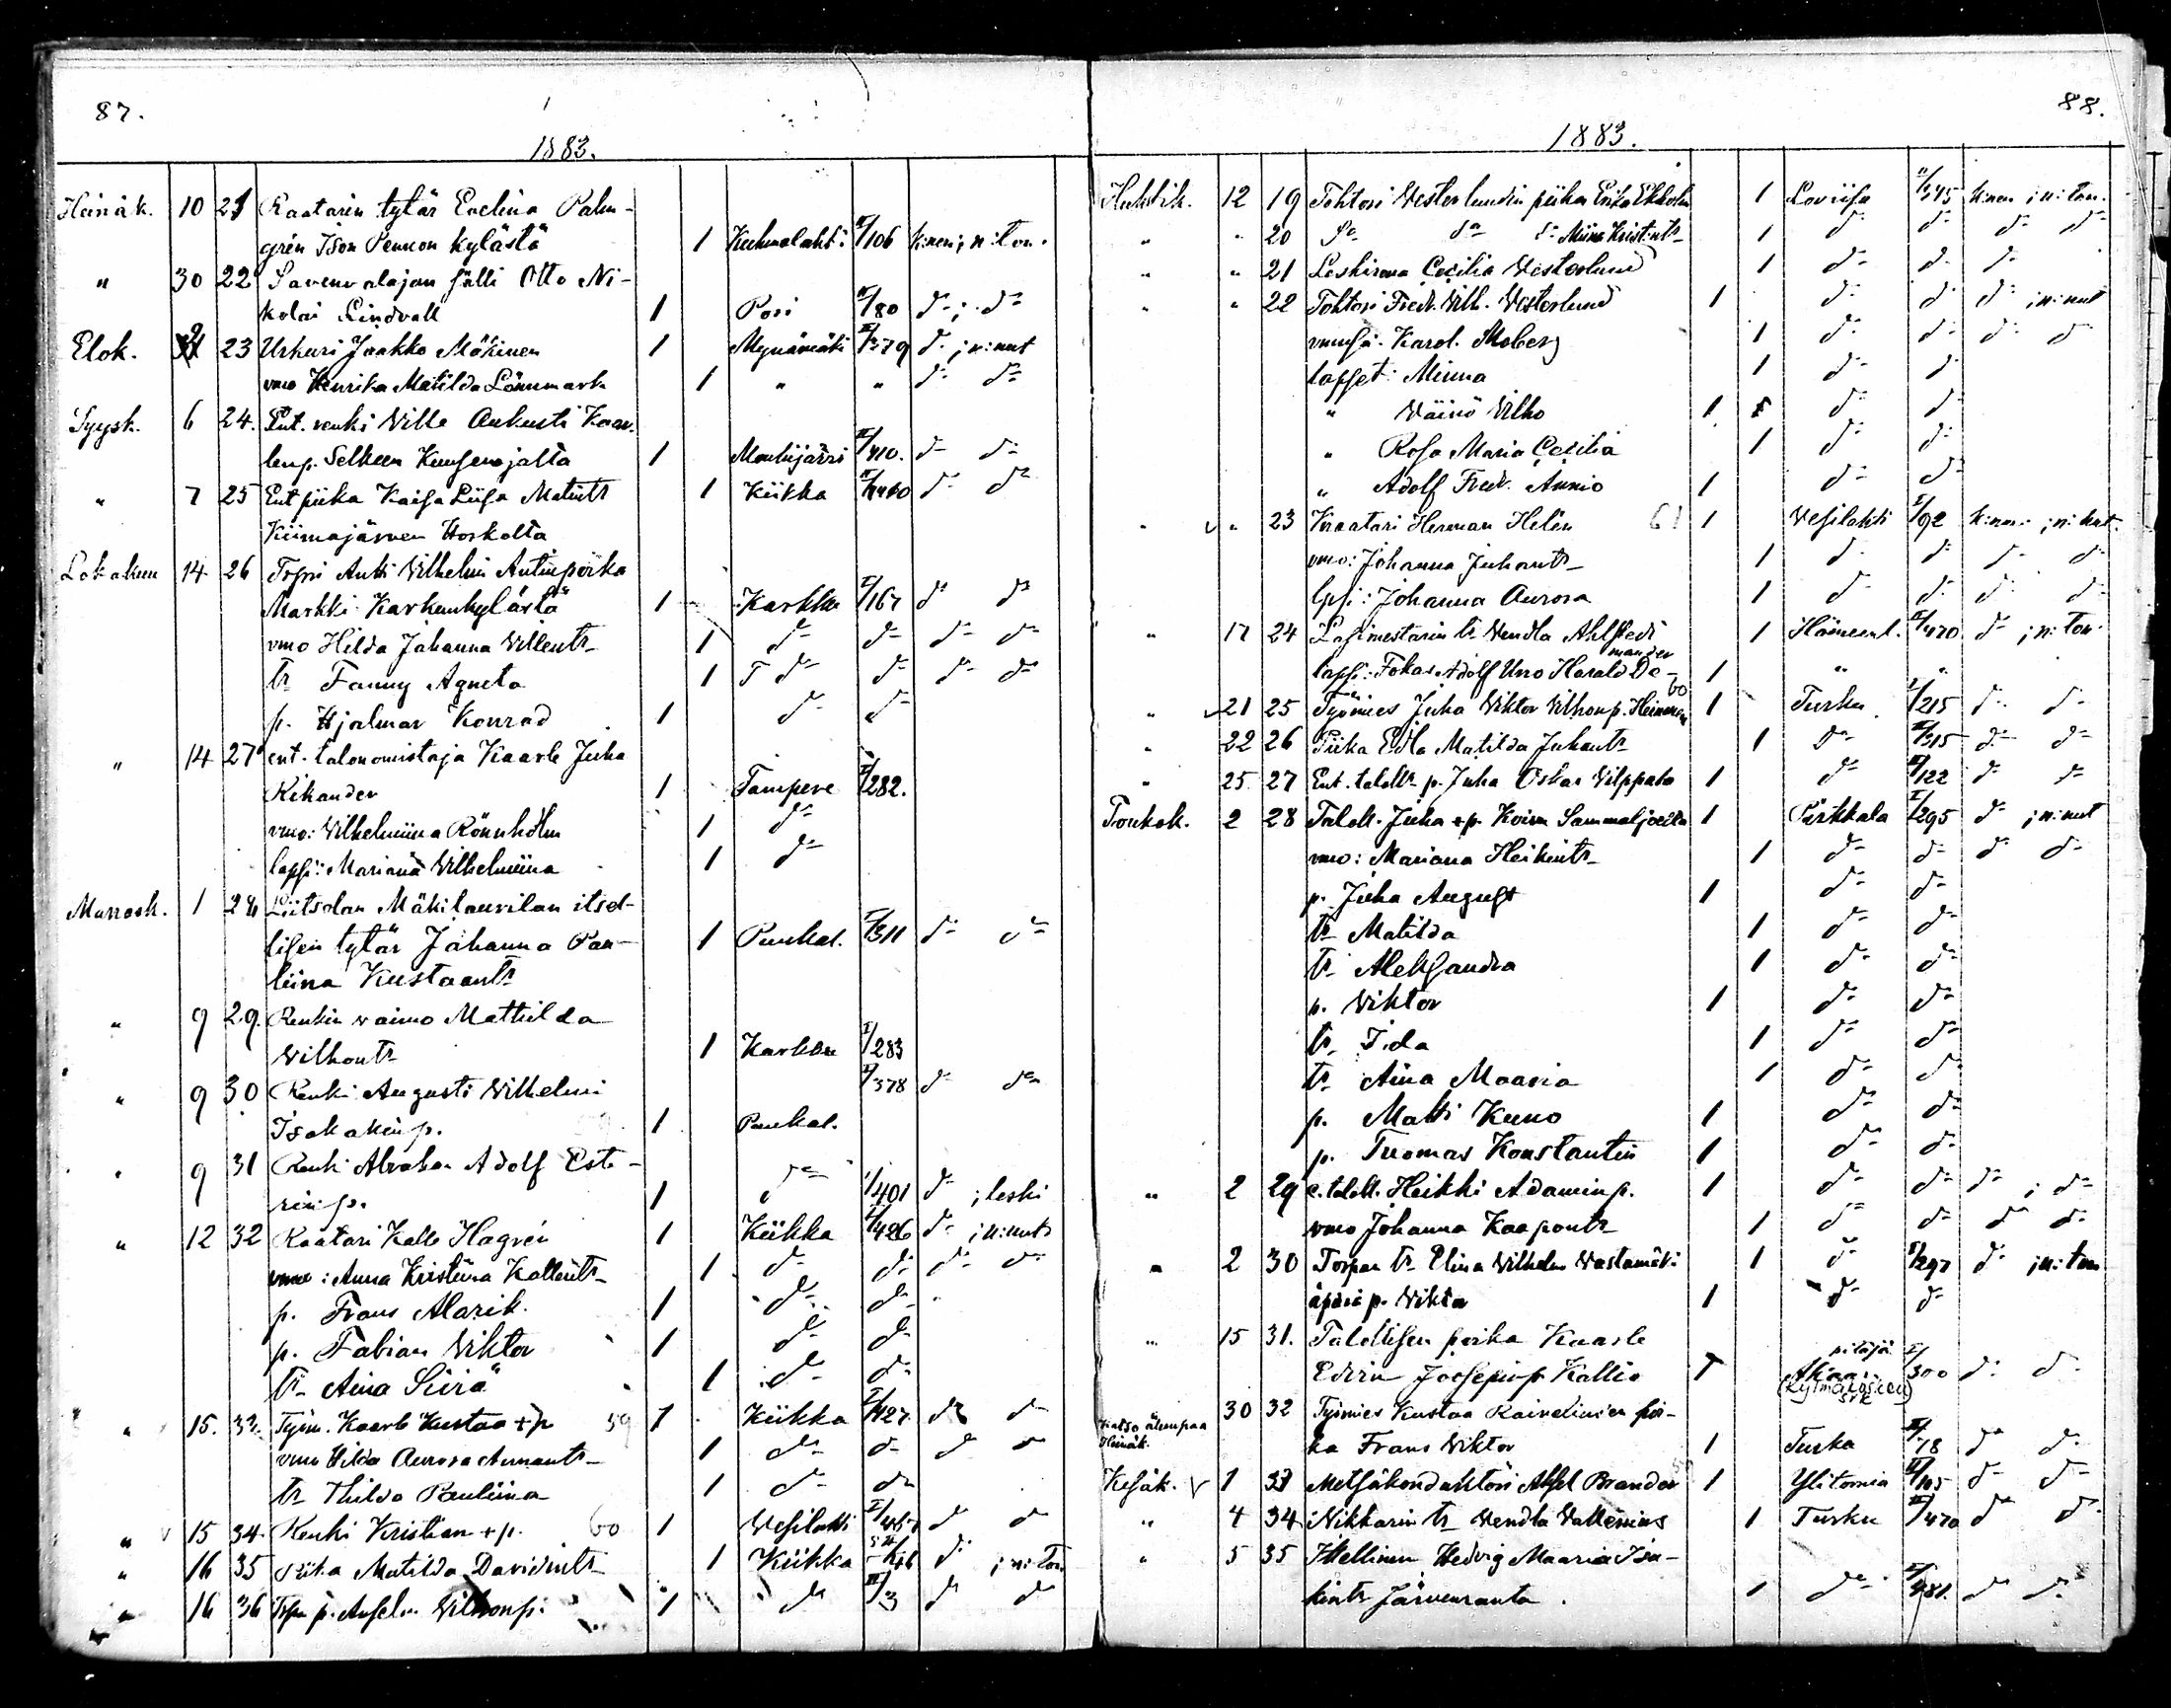 87.
1883.
Heinäk. 10 21 Raatarin tytär Evelina Palm-
grén Ison Pennon kylästä 1 Kuhmalahti II/106 k:nen; n:ton.
" 30 22 Savenvalajan sälli Otto Ni-
kolai Lindvall 1 Pori II/80 d:o; d:o
Elok. 23 Urkuri Jaakko Mäkinen 1 Mynämäki II/279 d:o; n:nut
vmo Henrika Matilda Lönnmark 1 " " d:o d:o
Syysk. 6 24. Ent. renki Ville Aukusti Kaar-
lenp. Selkeen Kuusenojalta 1 Mouhijärvi II/410. d:o d:o
" 7 25 Ent piika Kaisa Liisa Matintr 1 Kiikka d:o d:o
Kiimajärven Hoskolta
Lokakuu 14 26 Torpri Antti Vilhelm Antinpoika
Markki Karkunkylästä 1 Karkku I/167 d:o d:o
vmo Hilda Johanna Villentr 1 d:o d:o d:o d:o
tr Fanny Agneta 1 d:o d:o d:o d:o
p. Hjalmar Konrad 1 d:o d:o
" 14 27 ent. talonomistaja Kaarle Juha
Kikander 1 Tampere I/282.
vmo: Vilhelmiina Rönnholm 1 d:o
lapsi: Mariana Vilhelmiina 1 d:o
Marrask. 1 28 Liitsolan Mäkilaurilan itsel-
lisen tytär Johanna Pau- 1 Punkal. I/311 d:o d:o
liina Kustaantr
" 9 29. Renkin vaimo Mathilda
Vilhontr 1 Karkku I/283
" 9 30 Renki Augusti Vilhelmi II/378 d:o d:o
Isakakinp. 1 Punkal.
" 9 31 Renki Abraham Adolf Este-
rinp. 1 d:o I/401 d:o ; leski
" 12 32 Raatari Kalle Hagrén 1 Kiikka II/426 d:o ; n:nut
vmo: Anna Kristiina Kallentr 1 d:o d:o d:o d:o
p. Frans Alarik. 1 d:o d:o
p. Fabian Viktor 1 d:o d:o
tr Aina Siirä 1 d:o d:o
" 15. 33. Työm. Kaarle Kustaa +p 59 1 Kiikka I/427 d:o d:o
vmo Hilda Aurora Amantr 1 d:o d:o d:o d:o
tr Hilda Pauliina 1 d:o d:o
" v 15 34. Renki Kristian +p. 60 1 Vesilahti d:o d:o
" 16 35 Piika Matilda Davidintr 1 Kiikka d:o ; n:ton
" 16 36 Torp p. Anselm Vilhonp. 1 d:o III/3 d:o d:o
88.
1883.
Huhtik. 12 19 Tohtori Westerlundin piika Erika Ekholm 1 Loviisa II/545 k:nen ; n:ton.
" " 20 d:o d:o d:o Miina Kristintr 1 d:o d:o d:o d:o
" " 21 Leskirova Cecilia Westerlund 1 d:o d:o d:o
" " 22 Tohtori Fredr. Vilh. Westerlund 1 d:o d:o d:o ; n:nut
vmnsa: Karol. Moberg 1 d:o d:o d:o d:o
lapset: Minna 1 d:o d:o
" Väinö Vilho 1 d:o d:o
" Rosa Maria Cecilia 1 d:o d:o
" Adolf Fredr. Aunio 1 d:o d:o
" v " 23 Kraatari Herman Helin 61 1 Vesilahti I/92 k:nen ; n:nut.
vmo: Johanna Juhantr 1 d:o d:o d:o d:o
lpsi: Johanna Aurora 1 d:o d:o d:o d:o
" 17 24 Lasimestarin tr Vendla Ahlstedt 1 Hämeenl. II/470 d:o ; n:ton
mander
lapsi: Fokas Adolf Uno Harald De- 1 " "
60
" v 21 25 Työmies Juha Viktor Vilhonp. Heinonen 1 Turku I/215 d:o d:o
" 22 26 Piika Edla Matilda Juhantr 1 d:o II/315 d:o d:o
" 25. 27 Ent. talolln p. Juha Oskar Vilppala 1 d:o II/122 d:o d:o
Toukok. 2 28 Talolln. Juha +p. Koivu Sammaljoelta 1 Pirkkala I/295 d:o ; n:nut
vmo: Mariana Heikintr 1 d:o d:o d:o d:o
p. Juha August 1 d:o d:o
tr Matilda 1 d:o d:o
tr Aleksandra 1 d:o d:o
p. Viktor 1 d:o d:o
tr Iida 1 d:o d:o
tr Aina Maaria 1 d:o d:o
p. Matti Kuno 1 d:o d:o
p. Tuomas Konstantin 1 d:o d:o
" 2 29 e. talolln. Heikki Adaminp. 1 d:o d:o d:o ; d:o
vmo Johanna Kaapontr 1 d:o d:o d:o d:o
" 2 30 Torpan tr Elina Vilhelm Vastamäki 1 d:o I/297 d:o ; n:ton
äpärä p. Viktor 1 d:o d:o
" 15 31. Talollisen poika Kaarle pitäjä
Edvin Joosepinp Kallio 1 Akaa I/300 d:o d:o
(Kylmäkosken)
srk
Katso alempaa 30 32 Työmies Kustaa Kaivelius'en poi-
Heinäk. ka Frans Viktor 1 Turku II/18 d:o d:o
Kesäk. v 1 33 Metsäkonduktöri Aksel Brander 1 Ylitornio II/105 d:o d:o
" 4 34 Nikkarin tr Vendla Vallenius 1 Turku III/470 d:o d:o
" 5 35 Itsellinen Hedvig Maaria Isa-
kintr Järvenranta. 1 d:o II/481. d:o d:o